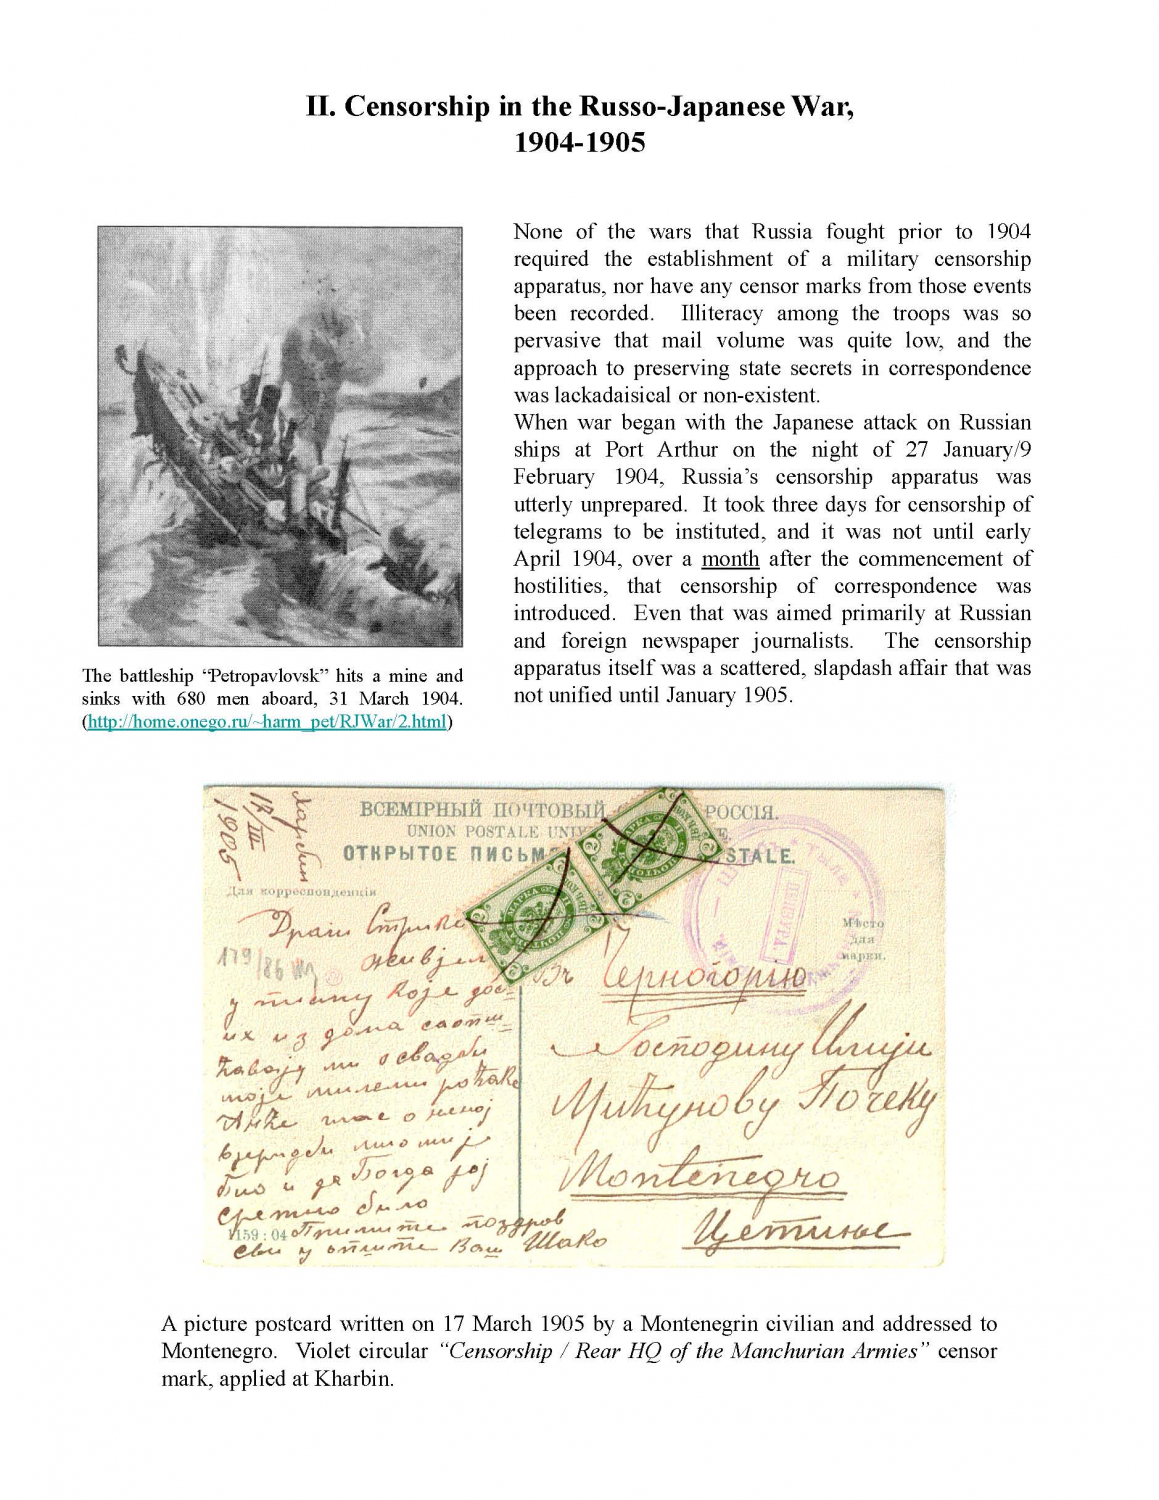 II. Censorship in the Russo-Japanese War,
1904-1905
None of the wars that Russia fought prior to 1904
required the establishment of a military censorship
apparatus, nor have any censor marks from those events
been recorded. Illiteracy among the troops was so
pervasive that mail volume was quite low, and the
approach to preserving state secrets in correspondence
was lackadaisical or non-existent.
When war began with the Japanese attack on Russian
ships at Port Arthur on the night of 27 January/9
February 1904, Russia’s censorship apparatus was
utterly unprepared. It took three days for censorship of
telegrams to be instituted, and it was not until early
April 1904, over a month after the commencement of
hostilities, that censorship of correspondence was
introduced. Even that was aimed primarily at Russian
and foreign newspaper journalists. The censorship
apparatus itself was a scattered, slapdash affair that was
not unified until January 1905.
The battleship “Petropavlovsk” hits a mine and
sinks with 680 men aboard, 31 March 1904.
(http://home.onego.ru/~harm_pet/RJWar/2.html)
Харбин
17/III
1905
ВСЕМІРНЫЙ ПОЧТОВЫЙ РОССІЯ.
UNION POSTALE
ОТКРЫТОЕ ПИСЬМ STALE.
Для корреспонденціи
Мѣсто
для
марки.
ЦЕНЗУРА.
Драги Стрико
179/86
у писму које
их из дома
о свадби
моје
о
и да Богда јој
сретно било
159:04 Примите поздрав
сви Ваш Шако
Въ Черногорію
Господину Илији
Мићунову Почеку
Montenegro
Цетиње
A picture postcard written on 17 March 1905 by a Montenegrin civilian and addressed to
Montenegro. Violet circular “Censorship / Rear HQ of the Manchurian Armies” censor
mark, applied at Kharbin.